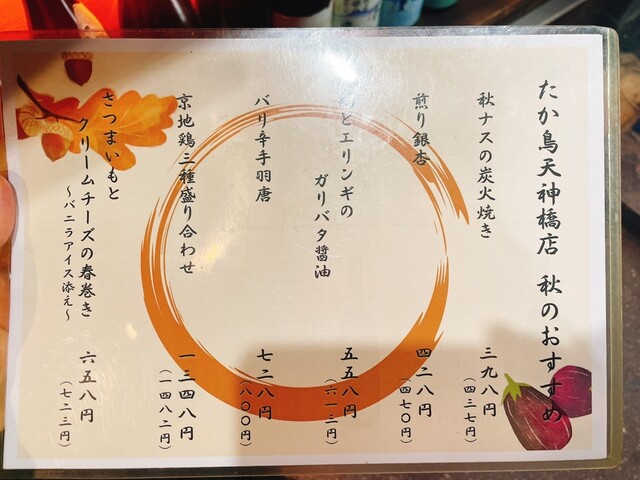 たか鳥天神橋店 秋のおすすめ
秋ナスの炭火焼き 三九八円
(四三七円)
煎り銀杏 四二八円
(四七〇円)
とエリンギの
ガリバタ醤油 五五八円
(六一三円)
バリ辛手羽唐 七二八円
(八〇〇円)
京地鶏三種盛り合わせ 一三四八円
(一四八二円)
さつまいもと
クリームチーズの春巻き
〜バニラアイス添え〜 六五八円
(七二三円)